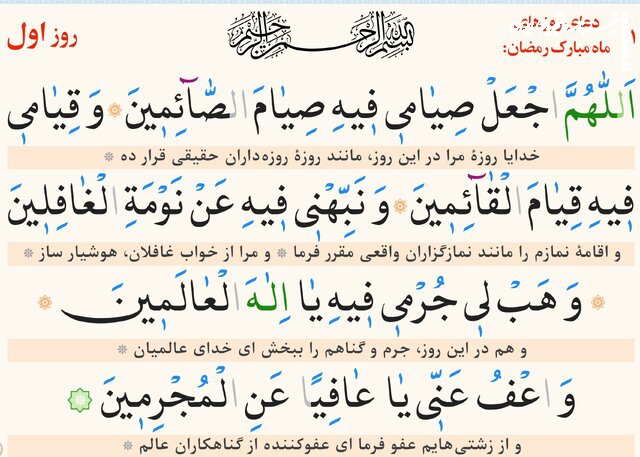 ۱ دعای روزهای ماه مبارک رمضان:
بسم الله الرحمن الرحیم
روز اول
اَللّٰهُمَّ اجْعَلْ صِيٰامٖى فٖيهِ صِيٰامَ الصّٰٓائِمٖينَ ۞ وَ قِيٰامٖى
خدایا روزهٔ مرا در این روز، مانند روزهٔ روزه‌داران حقیقی قرار ده
فٖيهِ قِيٰامَ الْقٰٓائِمٖينَ ۞ وَ نَبِّهْنٖى فٖيهِ عَنْ نَوْمَةِ الْغٰافِلٖينَ
و اقامهٔ نمازم را مانند نمازگزاران واقعی مقرر فرما ۞ و مرا از خواب غافلان، هوشیار ساز
وَ هَبْ لٖى جُرْمٖى فٖيهِ يٰا اِلٰهَ الْعٰالَمٖينَ
و هم در این روز، جرم و گناهم را ببخش ای خدای عالمیان
وَ اعْفُ عَنّٖى يٰا عٰافِيًا عَنِ الْمُجْرِمٖينَ
و از زشتی‌هایم عفو فرما ای عفوکننده از گناهکاران عالم